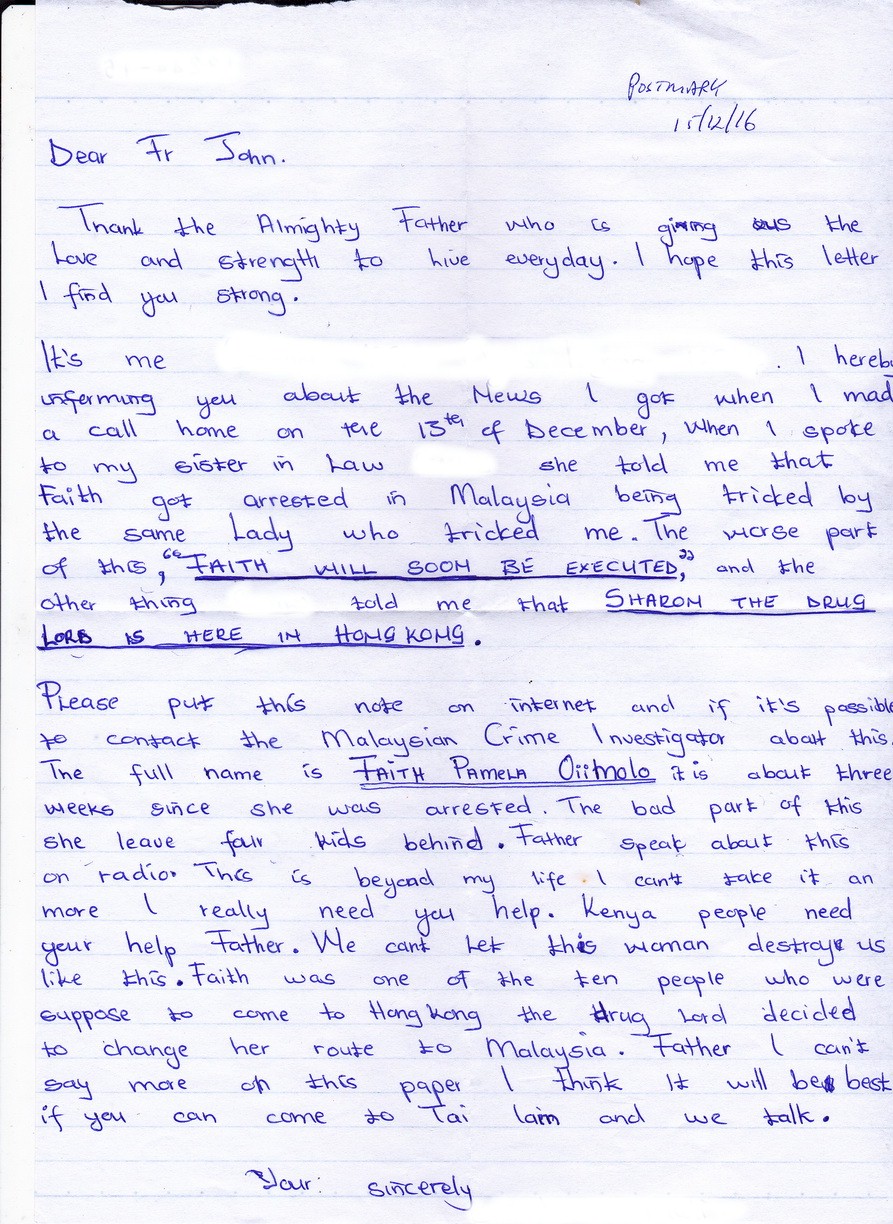 POSTMARK
15/12/16
Dear Fr John.
Thank the Almighty Father who is giving us the
Love and strength to live everyday. I hope this letter
I find you strong.
It's me . I hereb
unferming you about the News I got when I mad
a call home on the 13th of December, when I spoke
to my sister in Law she told me that
Faith got arrested in Malaysia being tricked by
the same Lady who tricked me. The worse part
of this, "FAITH WILL SOON BE EXECUTED," and the
other thing told me that SHARON THE DRUG
LORD IS HERE IN HONG KONG.
Please put this note on internet and if it's possible
to contact the Malaysian Crime Investigator about this.
The full name is FAITH PAMELA Oiitmolo it is about three
weeks since she was arrested. The bad part of this
she leave four kids behind. Father speak about this
on radio. This is beyond my life I can't take it an
more I really need you help. Kenya people need
your help Father. We cant let this woman destroy us
like this. Faith was one of the ten people who were
suppose to come to Hong kong the drug Lord decided
to change her route to Malaysia. Father I can't
say more on this paper I think It will be best
if you can come to Tai lam and we talk.
Your: sincerely